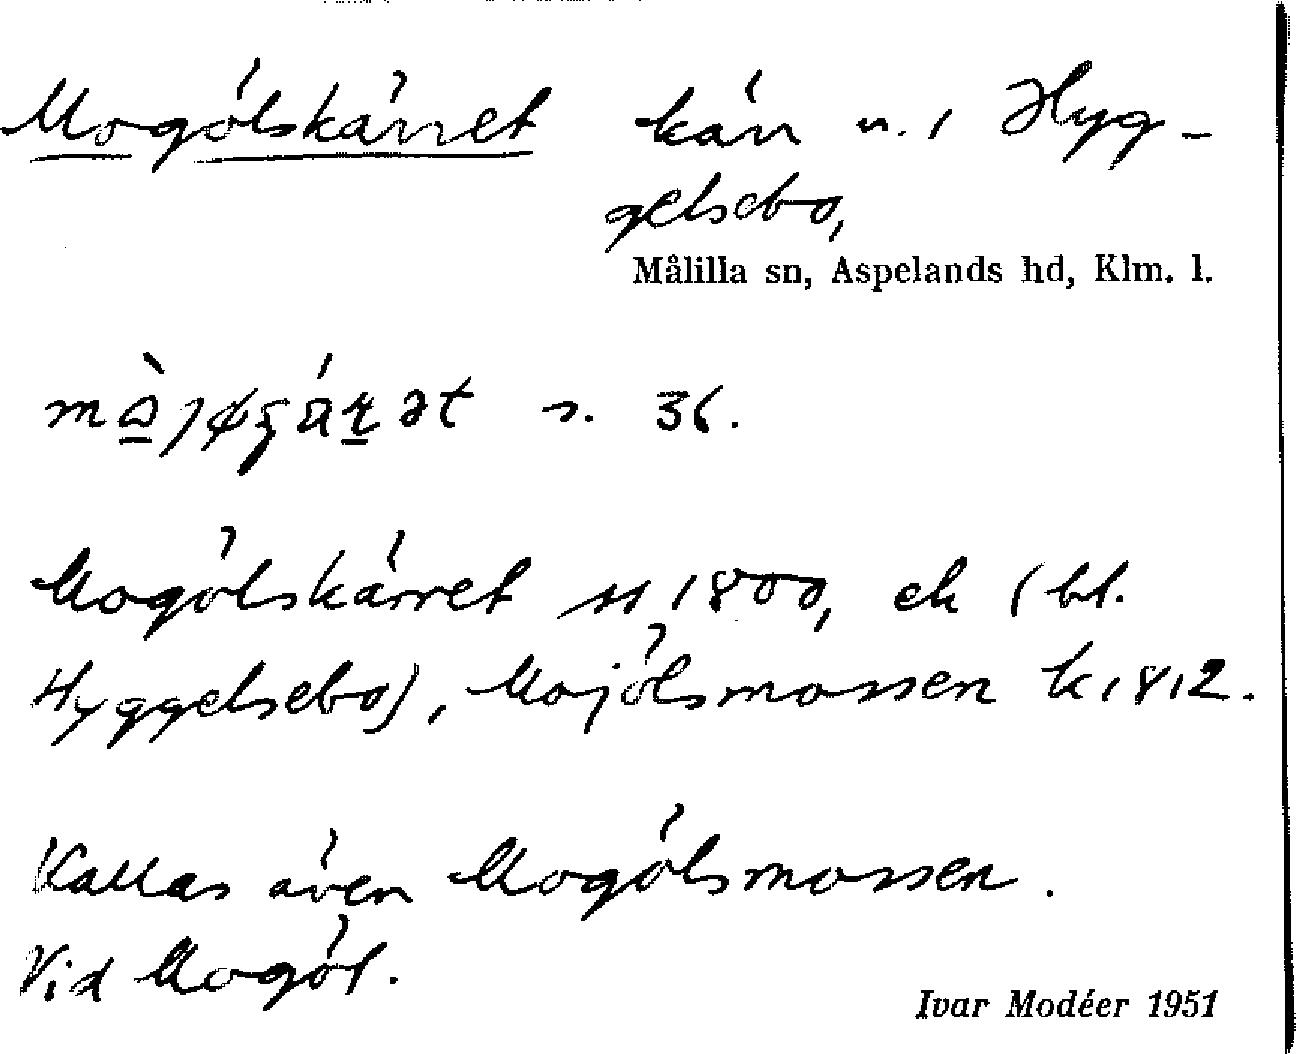 Mogölskärret kärr n. i Hyg-
gelsebo,
Målilla sn, Aspelands hd, Klm. l.
s. 36.
Mogölskärret 1800, ek (bl.
Hyggelsebo), Mojölsmossen k 1812.
Kallas även Mogölsmossen.
Vid Mogöl.
Ivar Modéer 1951